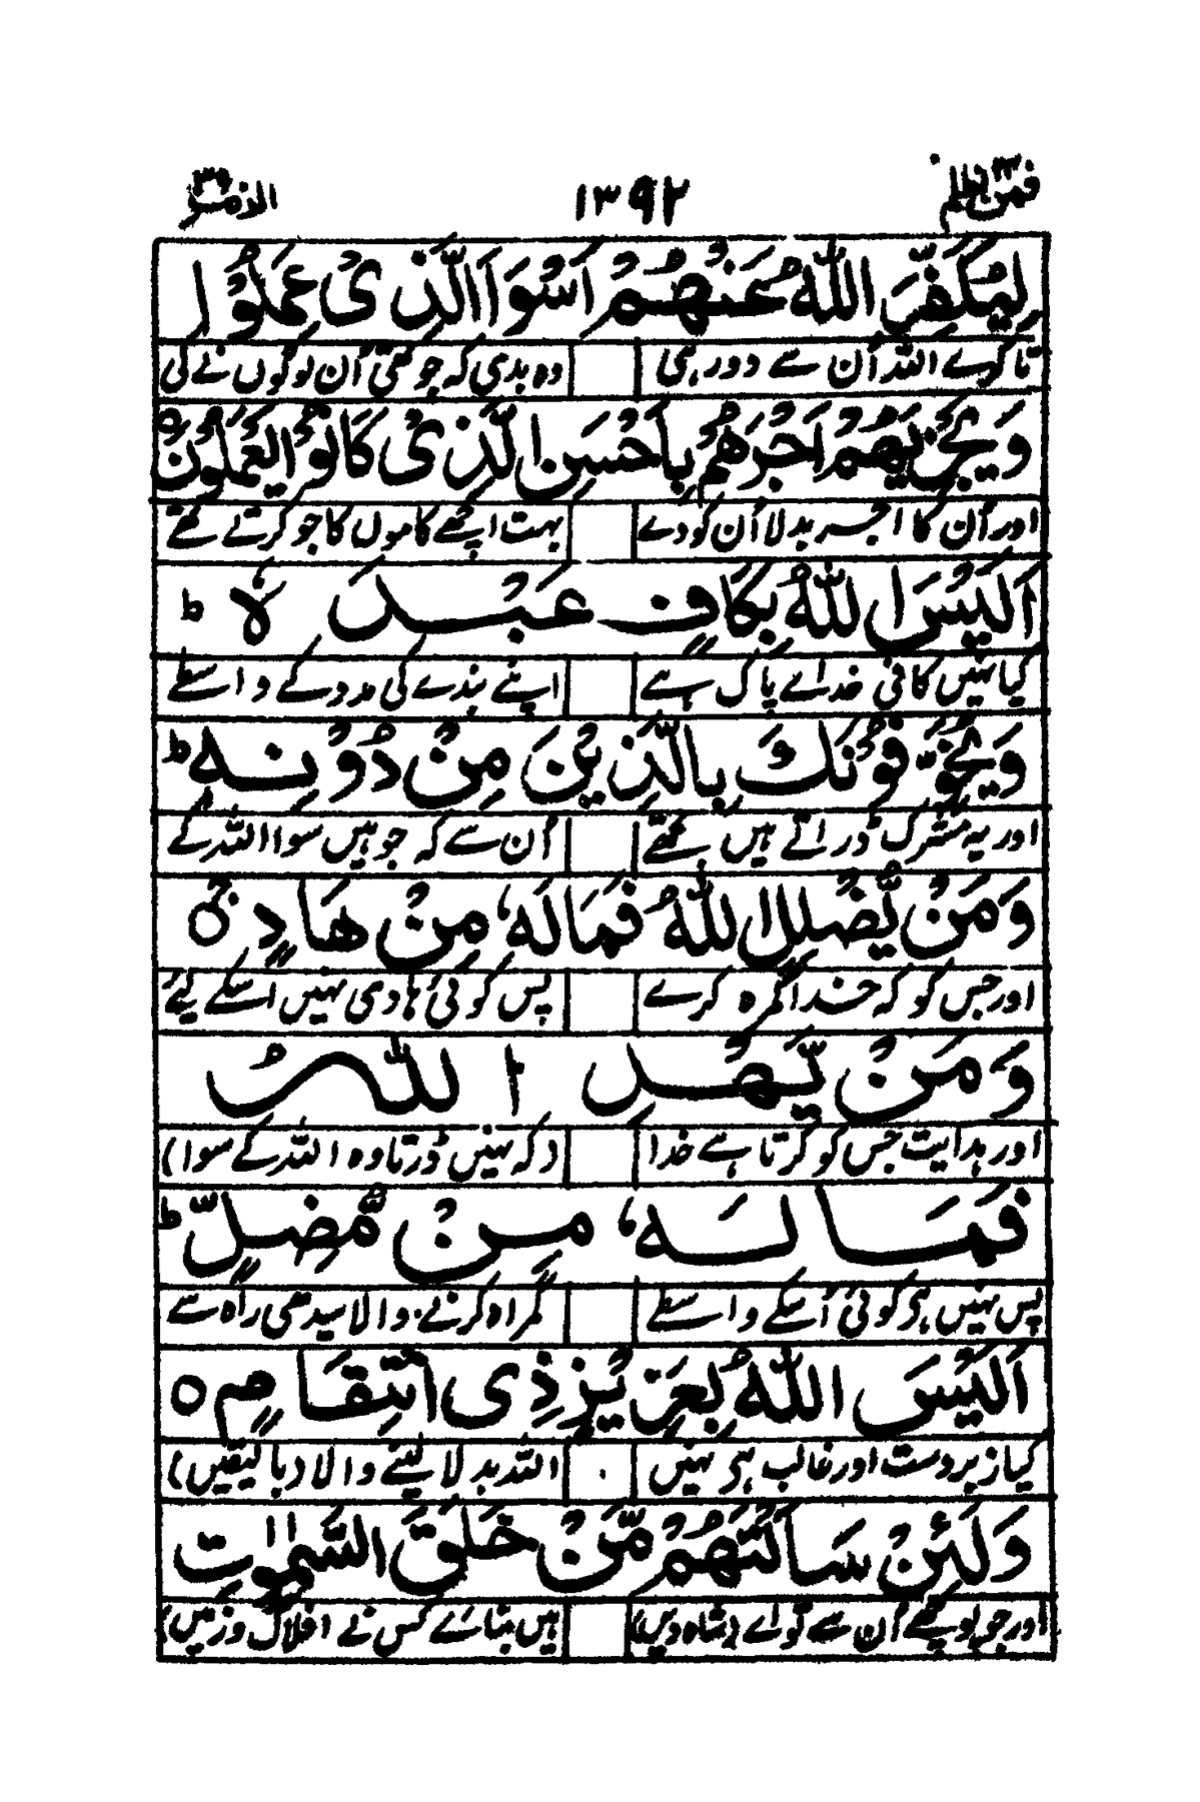 فمن اظلم ۲۳ ۱۳۹۲ الزمر ۳۹
لِيُكَفِّرَ اللّٰهُ عَنْهُمْ اَسْوَاَ الَّذِىْ عَمِلُوْا
تا کرے اللہ اُن سے دور ہی وہ بدی کہ جو تھی اُن لوگوں نے کی
وَيَجْزِيَهُمْ اَجْرَهُمْ بِاَحْسَنِ الَّذِىْ كَانُوْا يَعْمَلُوْنَ ۝
اور اُن کا اجر بدلا اُن کو دے بہت اچھے کاموں کا جو کرتے تھے
اَلَيْسَ اللّٰهُ بِكَافٍ عَبْدَهٗ ؕ
کیا نہیں کافی خداے پاک ہے اپنے بندے کی مدد کے واسطے
وَيُخَوِّفُوْنَكَ بِالَّذِيْنَ مِنْ دُوْنِهٖ ؕ
اور یہ مشرک ڈراتے ہیں تجھے اُن سے کہ جو ہیں سوا اللہ کے
وَمَنْ يُّضْلِلِ اللّٰهُ فَمَا لَهٗ مِنْ هَادٍ ۝
اور جس کو کہ خدا گمرہ کرے پس کوئی ہادی نہیں اسکے لیے
وَمَنْ يَّهْدِ اللّٰهُ
اور ہدایت جس کو کرتا ہے خدا (کہ نہیں ڈرتا وہ اللہ کے سوا)
فَمَا لَهٗ مِنْ مُّضِلٍّ ؕ
پس نہیں ہی کوئی اُسکے واسطے گمراہ کرنے والا سیدھی راہ سے
اَلَيْسَ اللّٰهُ بِعَزِيْزٍ ذِى انْتِقَامٍ ۝
کیا زبردست اور غالب ہی نہیں اللہ بدلا لینے والا (بالیقیں)
وَلَئِنْ سَاَلْتَهُمْ مَّنْ خَلَقَ السَّمٰوٰتِ
اور جو پوچھے اُن سے تو اے (شاہ دیں) ہیں بنائے کس نے افلاک و زمیں